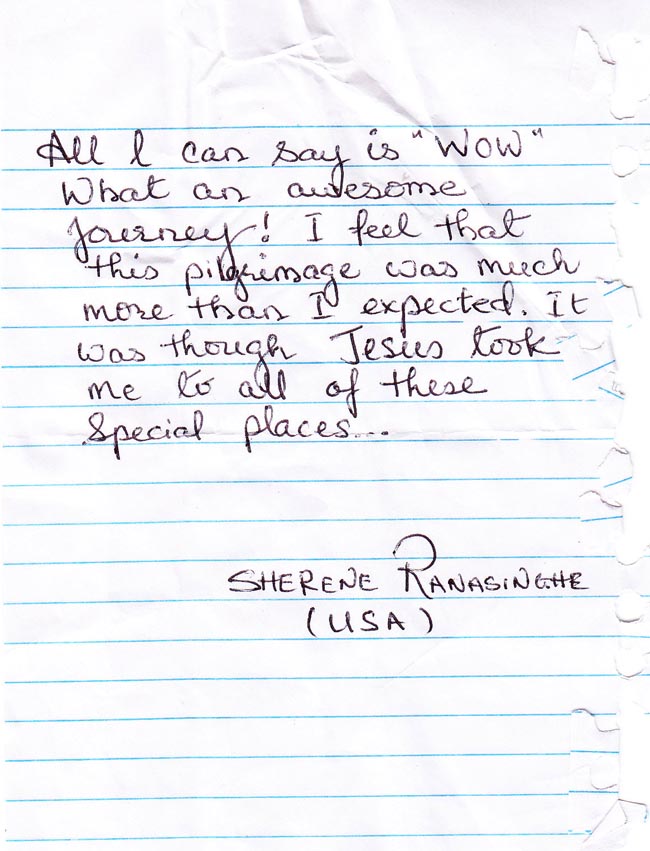 All I can say is "WOW"
What an awesome
Journey! I feel that
this pilgrimage was much
more than I expected. It
was though Jesus took
me to all of these
Special places...
SHERENE RANASINGHE
(USA)